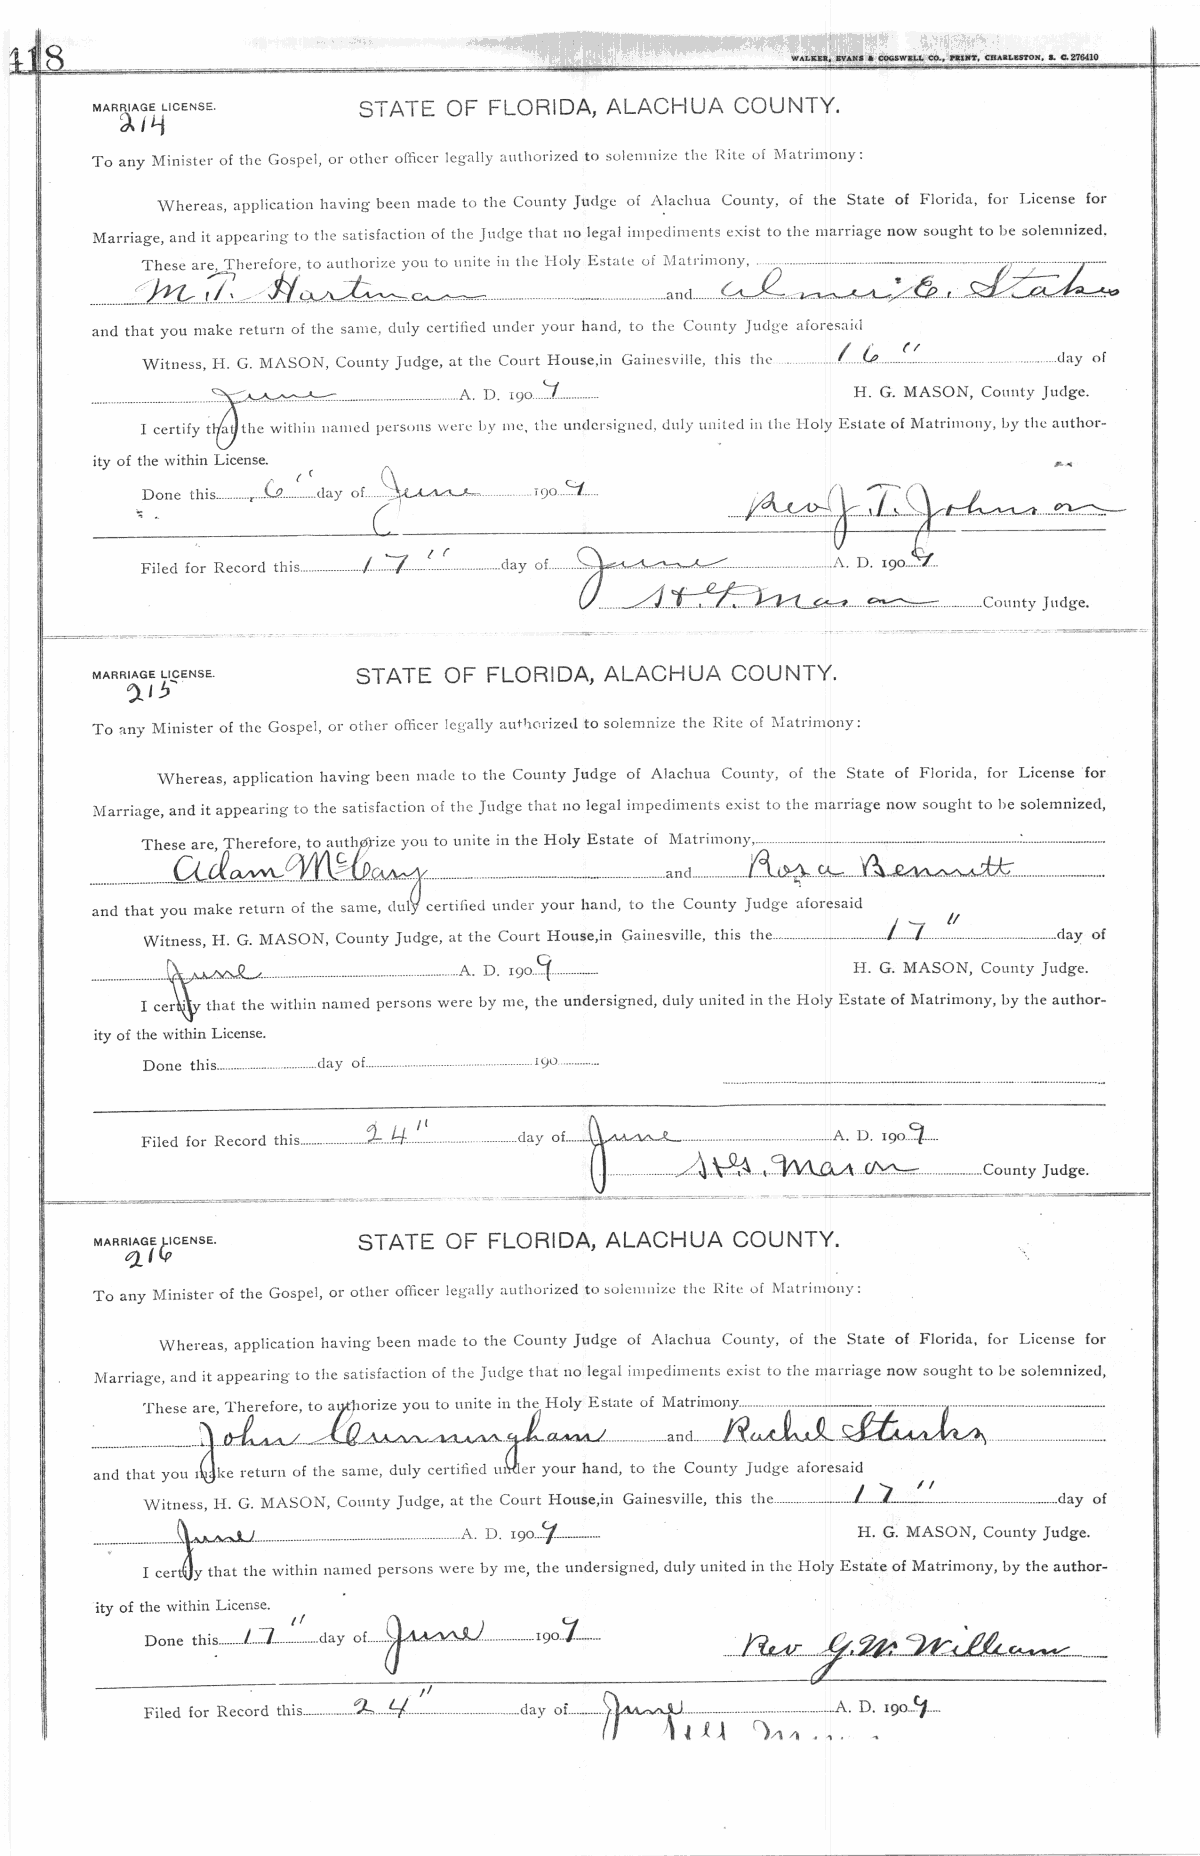 418
WALKER, EVANS & COGSWELL CO., PRINT, CHARLESTON, S. C. 276410
MARRIAGE LICENSE. STATE OF FLORIDA, ALACHUA COUNTY.
214
To any Minister of the Gospel, or other officer legally authorized to solemnize the Rite of Matrimony:
Whereas, application having been made to the County Judge of Alachua County, of the State of Florida, for License for
Marriage, and it appearing to the satisfaction of the Judge that no legal impediments exist to the marriage now sought to be solemnized.
These are, Therefore, to authorize you to unite in the Holy Estate of Matrimony,
M. T. Hartman and E. Stokes
and that you make return of the same, duly certified under your hand, to the County Judge aforesaid
Witness, H. G. MASON, County Judge, at the Court House, in Gainesville, this the 16" day of
June A. D. 1909 H. G. MASON, County Judge.
I certify that the within named persons were by me, the undersigned, duly united in the Holy Estate of Matrimony, by the author-
ity of the within License.
Done this 16" day of June 1909 Rev J. T. Johnson
Filed for Record this 17" day of June A. D. 1909
H. G. Mason County Judge.
MARRIAGE LICENSE. STATE OF FLORIDA, ALACHUA COUNTY.
215
To any Minister of the Gospel, or other officer legally authorized to solemnize the Rite of Matrimony:
Whereas, application having been made to the County Judge of Alachua County, of the State of Florida, for License for
Marriage, and it appearing to the satisfaction of the Judge that no legal impediments exist to the marriage now sought to be solemnized,
These are, Therefore, to authorize you to unite in the Holy Estate of Matrimony,
Adam McCary and Rosa Bennett
and that you make return of the same, duly certified under your hand, to the County Judge aforesaid
Witness, H. G. MASON, County Judge, at the Court House, in Gainesville, this the 17" day of
June A. D. 1909 H. G. MASON, County Judge.
I certify that the within named persons were by me, the undersigned, duly united in the Holy Estate of Matrimony, by the author-
ity of the within License.
Done this day of 190
Filed for Record this 24" day of June A. D. 1909
H. G. Mason County Judge.
MARRIAGE LICENSE. STATE OF FLORIDA, ALACHUA COUNTY.
216
To any Minister of the Gospel, or other officer legally authorized to solemnize the Rite of Matrimony:
Whereas, application having been made to the County Judge of Alachua County, of the State of Florida, for License for
Marriage, and it appearing to the satisfaction of the Judge that no legal impediments exist to the marriage now sought to be solemnized,
These are, Therefore, to authorize you to unite in the Holy Estate of Matrimony
John Cunningham and Rachel
and that you make return of the same, duly certified under your hand, to the County Judge aforesaid
Witness, H. G. MASON, County Judge, at the Court House, in Gainesville, this the 17" day of
June A. D. 1909 H. G. MASON, County Judge.
I certify that the within named persons were by me, the undersigned, duly united in the Holy Estate of Matrimony, by the author-
ity of the within License.
Done this 17" day of June 1909 Rev G. W. William
Filed for Record this 24" day of June A. D. 1909